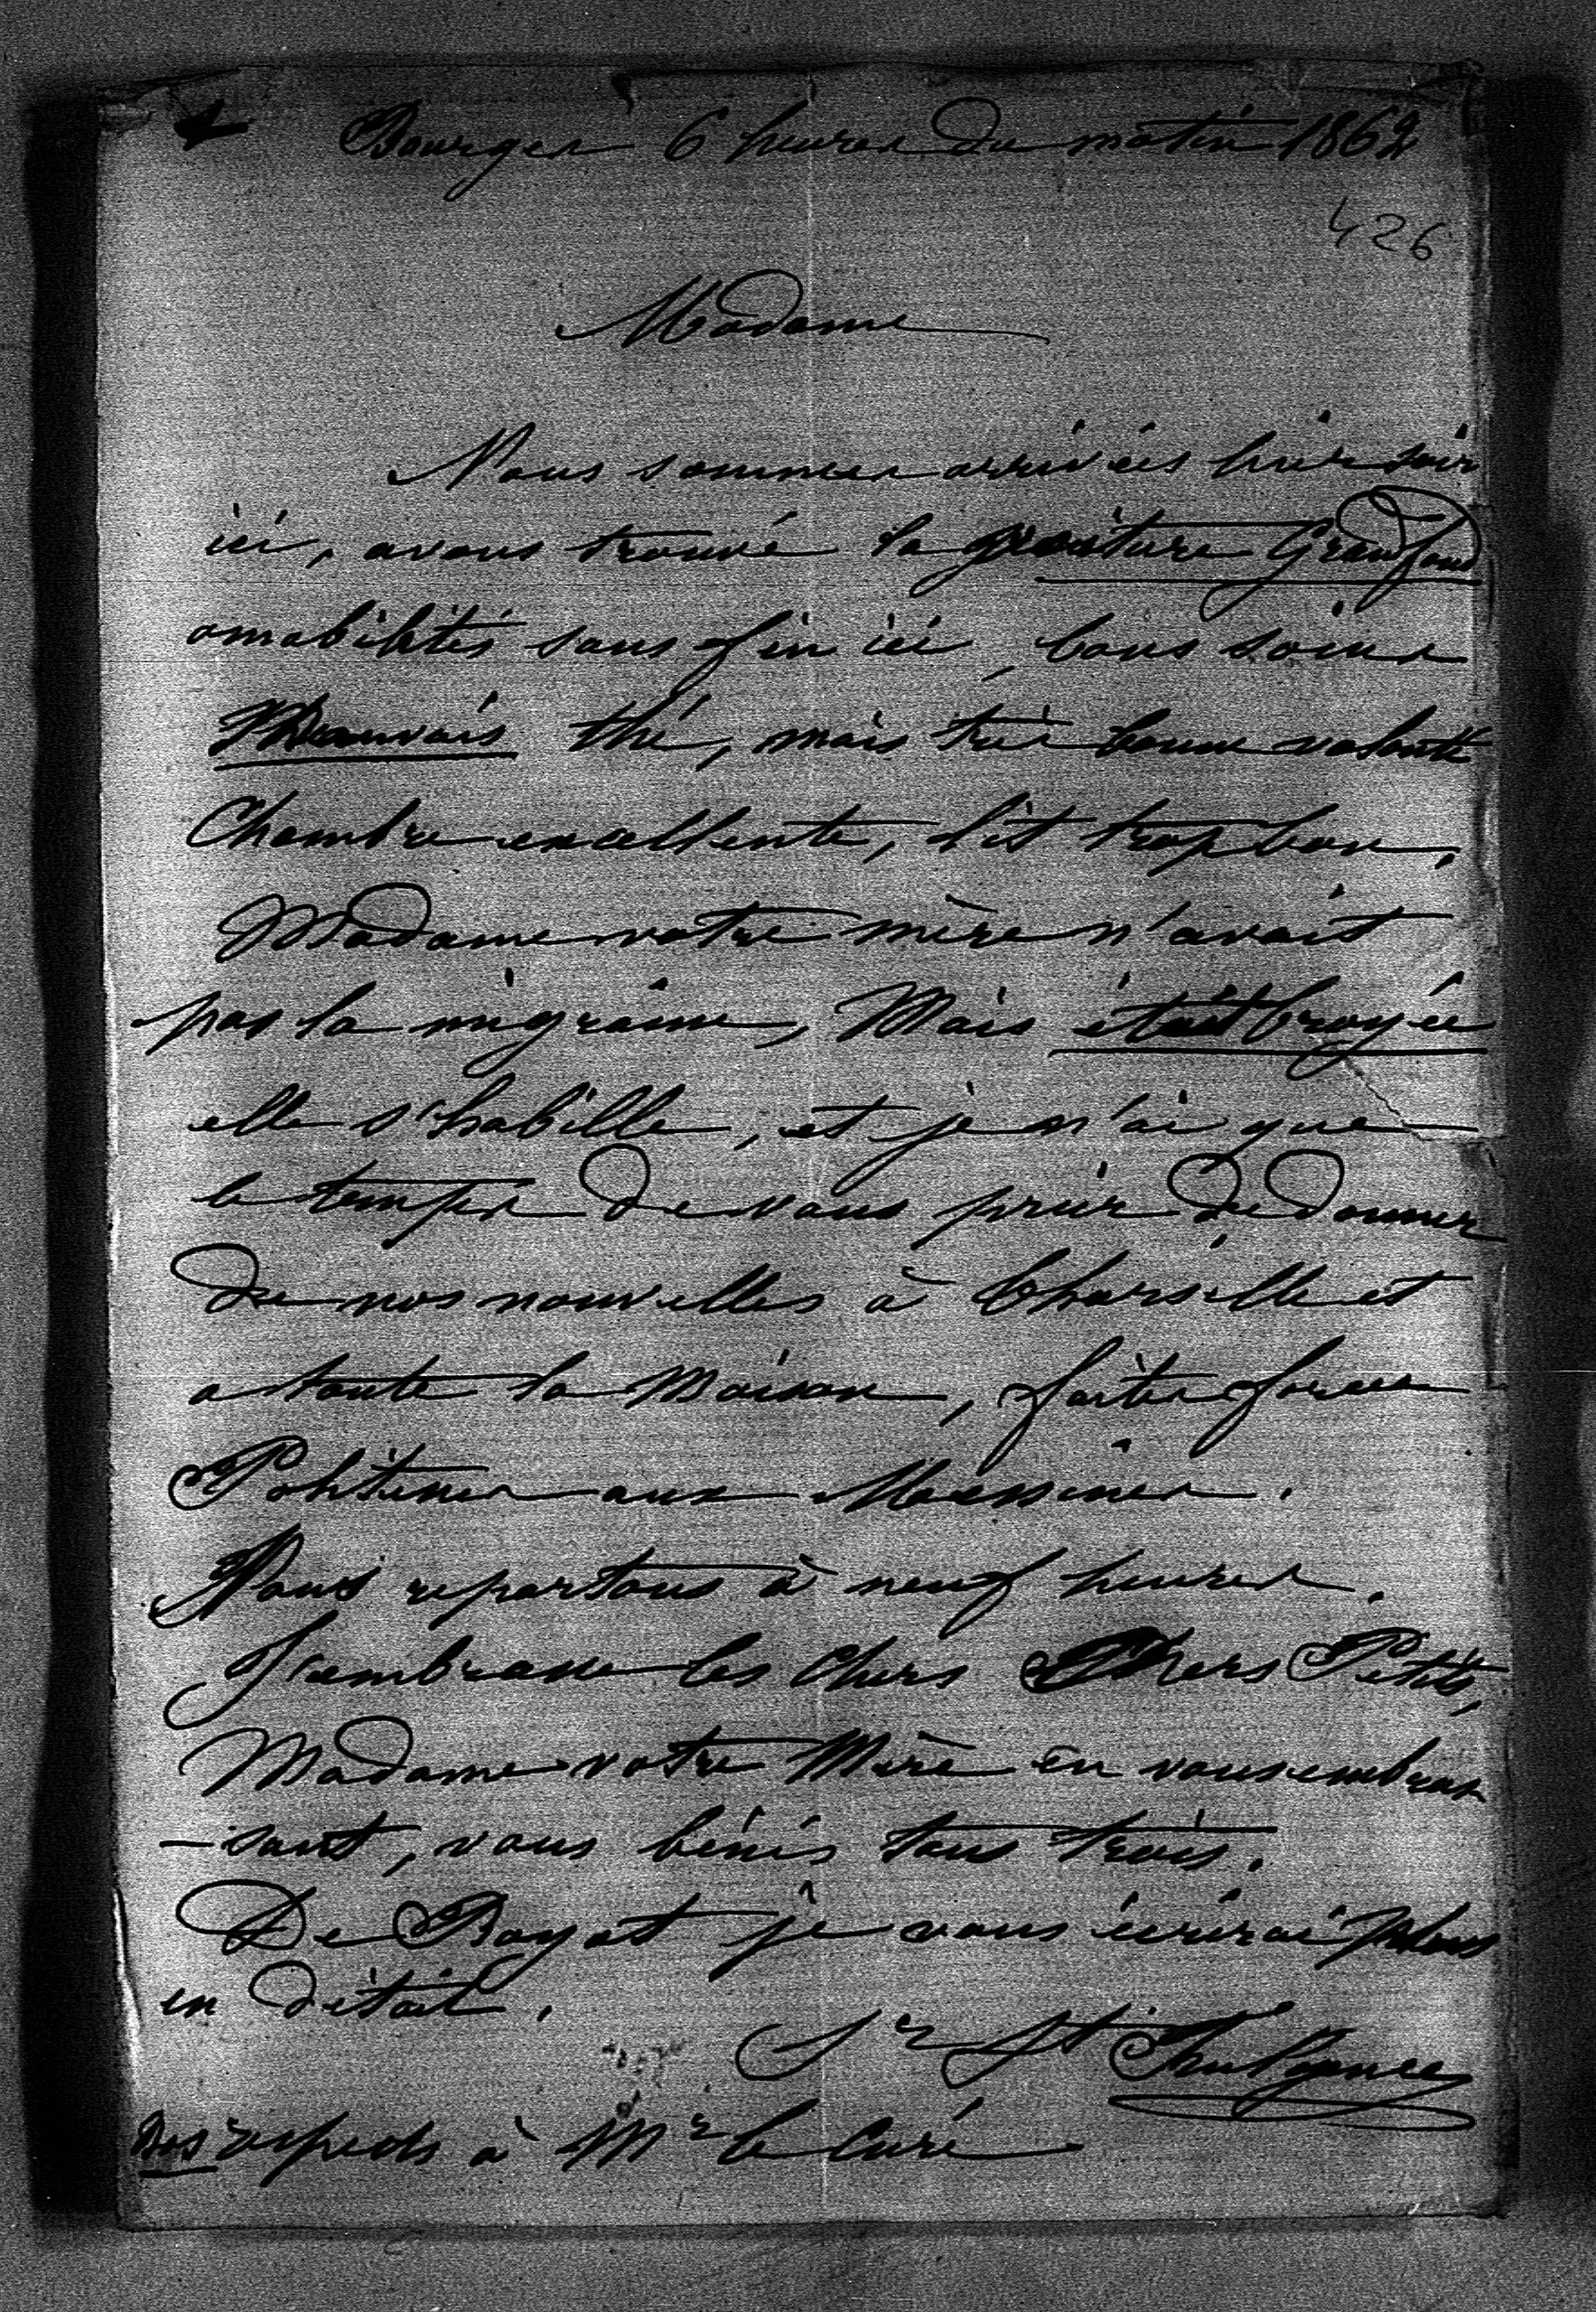 Bourges 6 heures du matin 1862
426
Madame
Nous sommes arrivées hier soir
ici, avons trouvé la
amabilités sans fin ici, bons soins
Mauvais thé, mais très bonne volonté
Chambre excellente, lit trop bon,
Madame votre mère n'avait
pas la migraine, Mais était broyée
elle s'habille, et je n'ai que
le temps de vous prier de donner
de nos nouvelles à et
a toute la Maison, faites
Politesses aux
Nous repartons à neuf heures.
J'embrasse les Chers Chers Petits,
Madame votre Mère en vous embras
-sant, vous bénis tous trois.
De Royat je vous écrirai plus
en détail.
Sr St Fulgence
Des respects à Mr le Curé